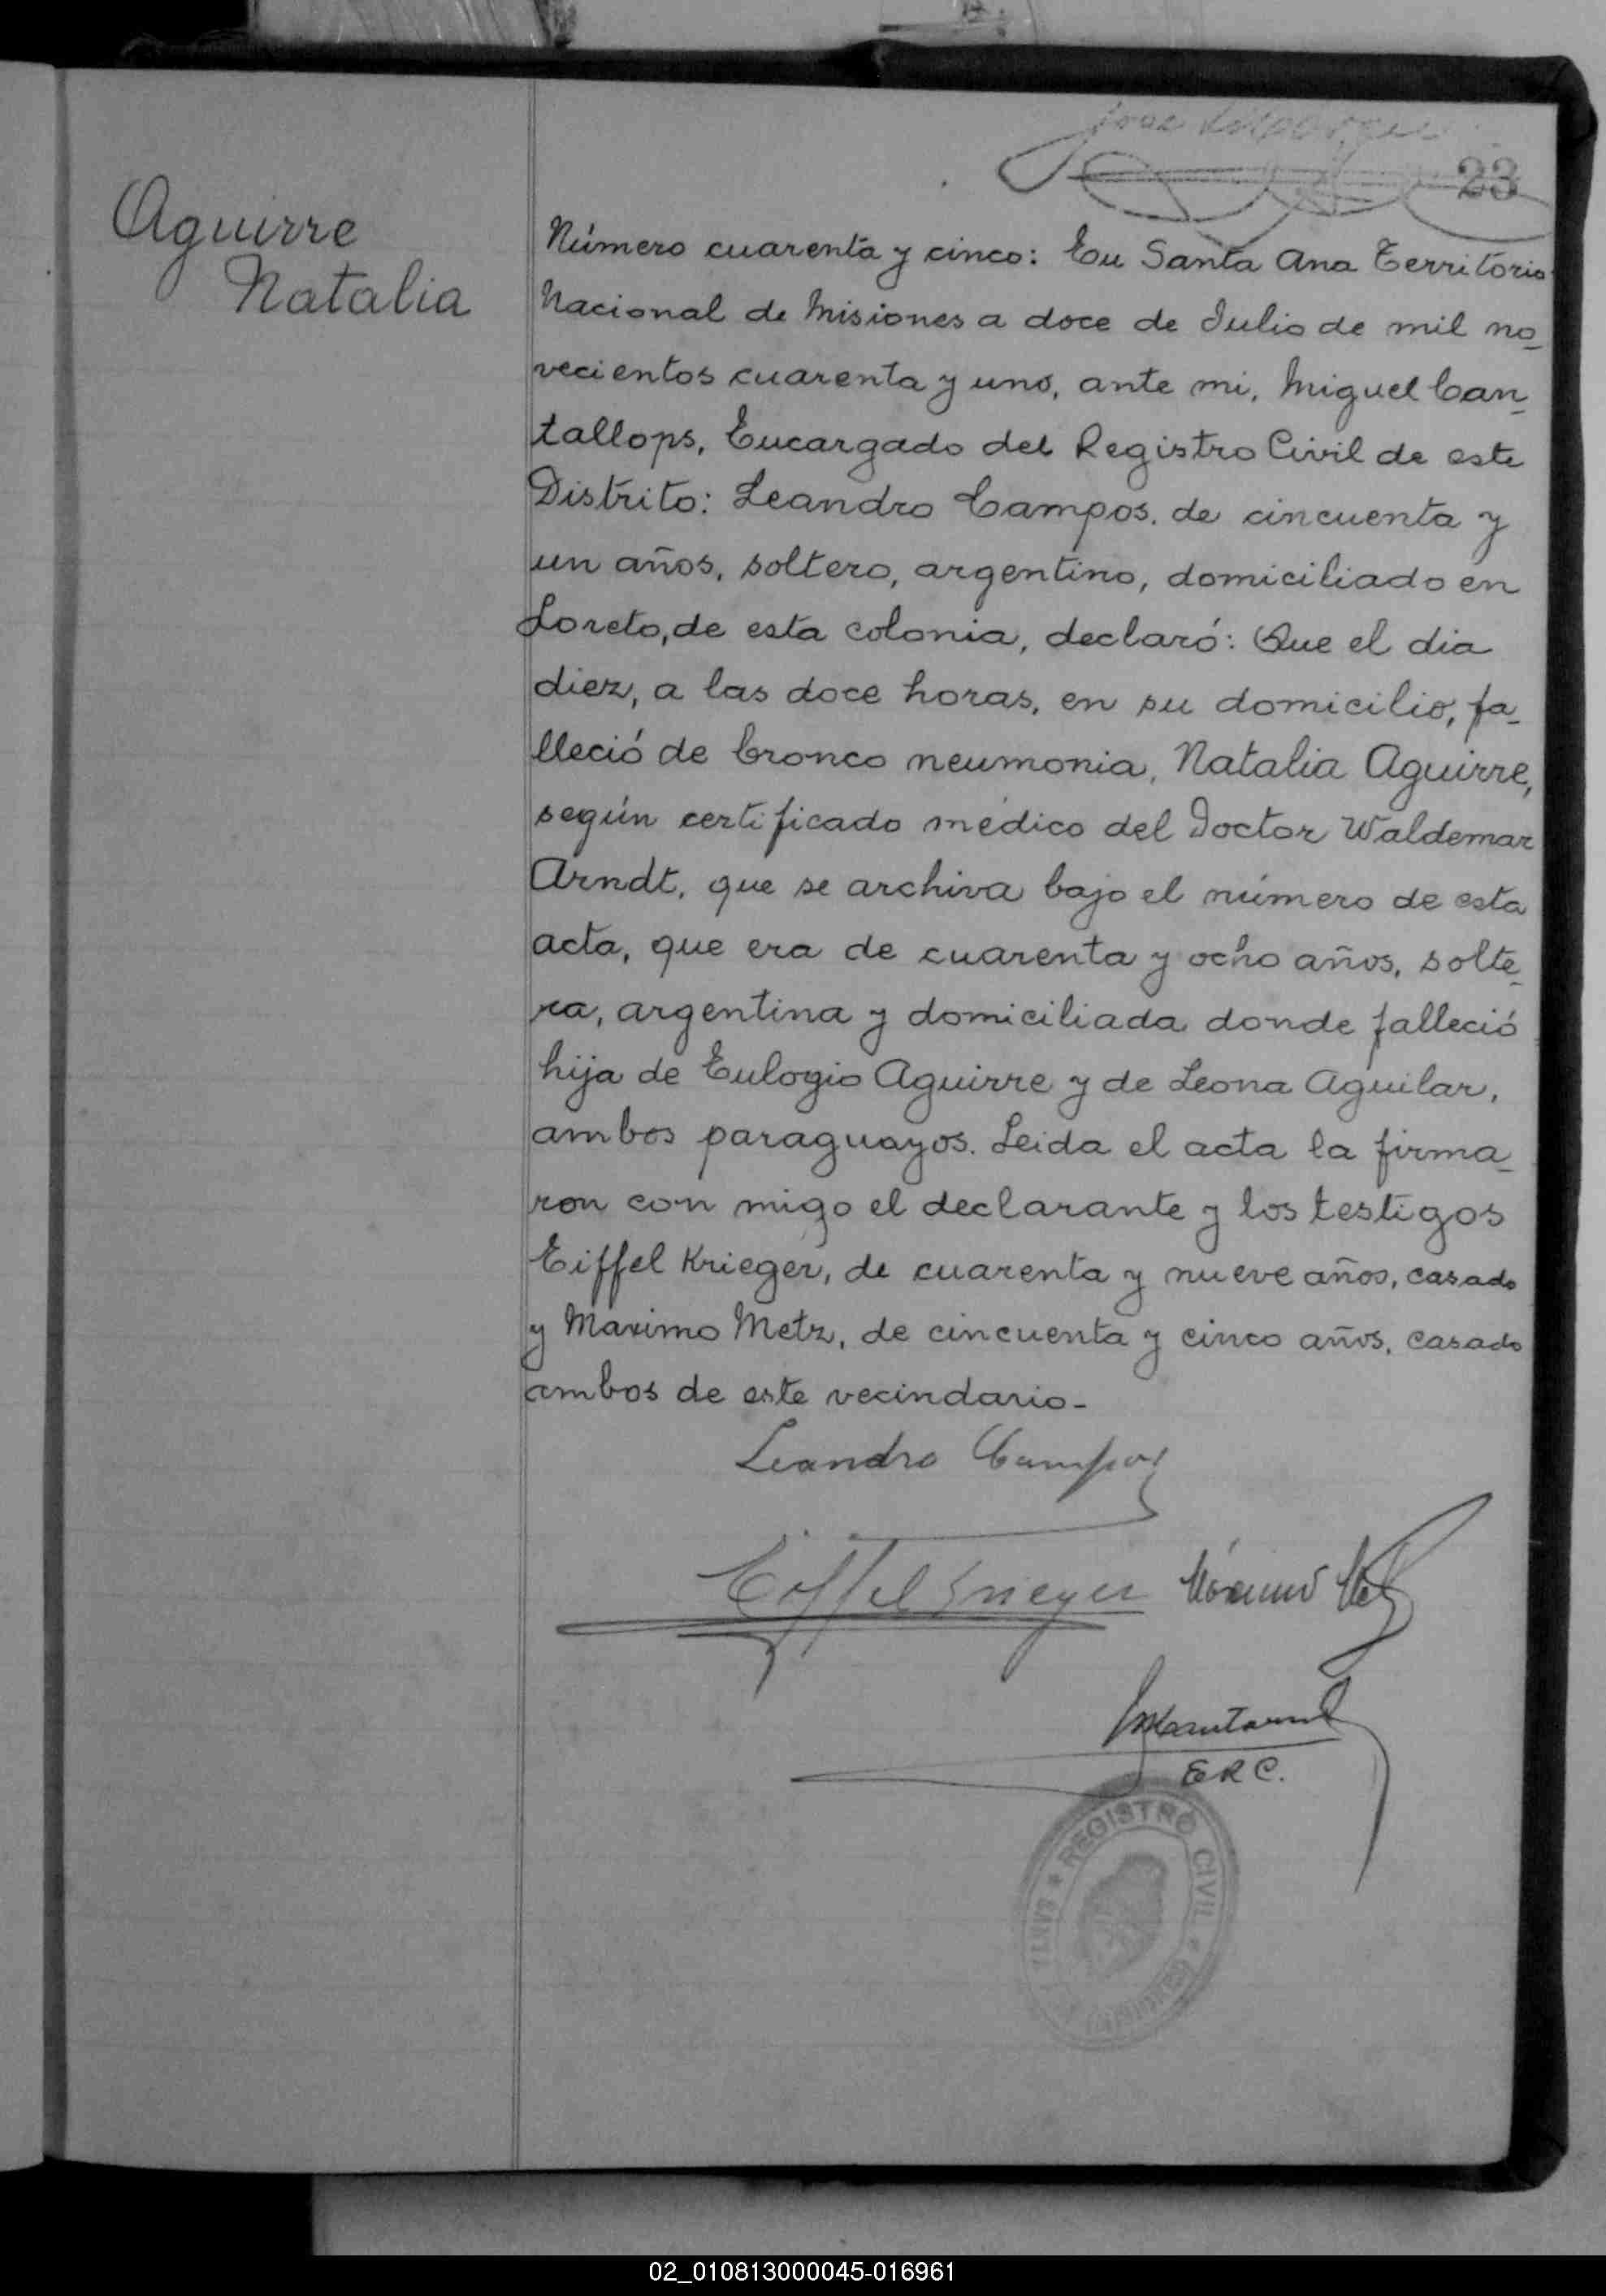 23
Aguirre
Natalia
Número cuarenta y cinco: En Santa Ana Territorio
Nacional de Misiones a doce de Julio de mil no_
vecientos cuarenta y uno, ante mi, Miguel Can_
tallops, Encargado del Registro Civil de este
Distrito: Leandro Campos, de cincuenta y
un años, soltero, argentino, domiciliado en
Loreto, de esta colonia, declaró: Que el dia
diez, a las doce horas, en su domicilio, fa_
lleció de bronco neumonia, Natalia Aguirre,
según certificado médico del Doctor Waldemar
Arndt, que se archiva bajo el número de esta
acta, que era de cuarenta y ocho años, solte_
ra, argentina y domiciliada donde falleció
hija de Eulogio Aguirre y de Leona Aguilar,
ambos paraguayos. Leida el acta la firma_
ron con migo el declarante y los testigos
Eiffel Krieger, de cuarenta y nueve años, casado
y Maximo Metz, de cincuenta y cinco años, casado
ambos de este vecindario_
Leandro Campos
Eiffel Krieger Máximo Metz
E R C.
REGISTRO CIVIL
02_010813000045-016961